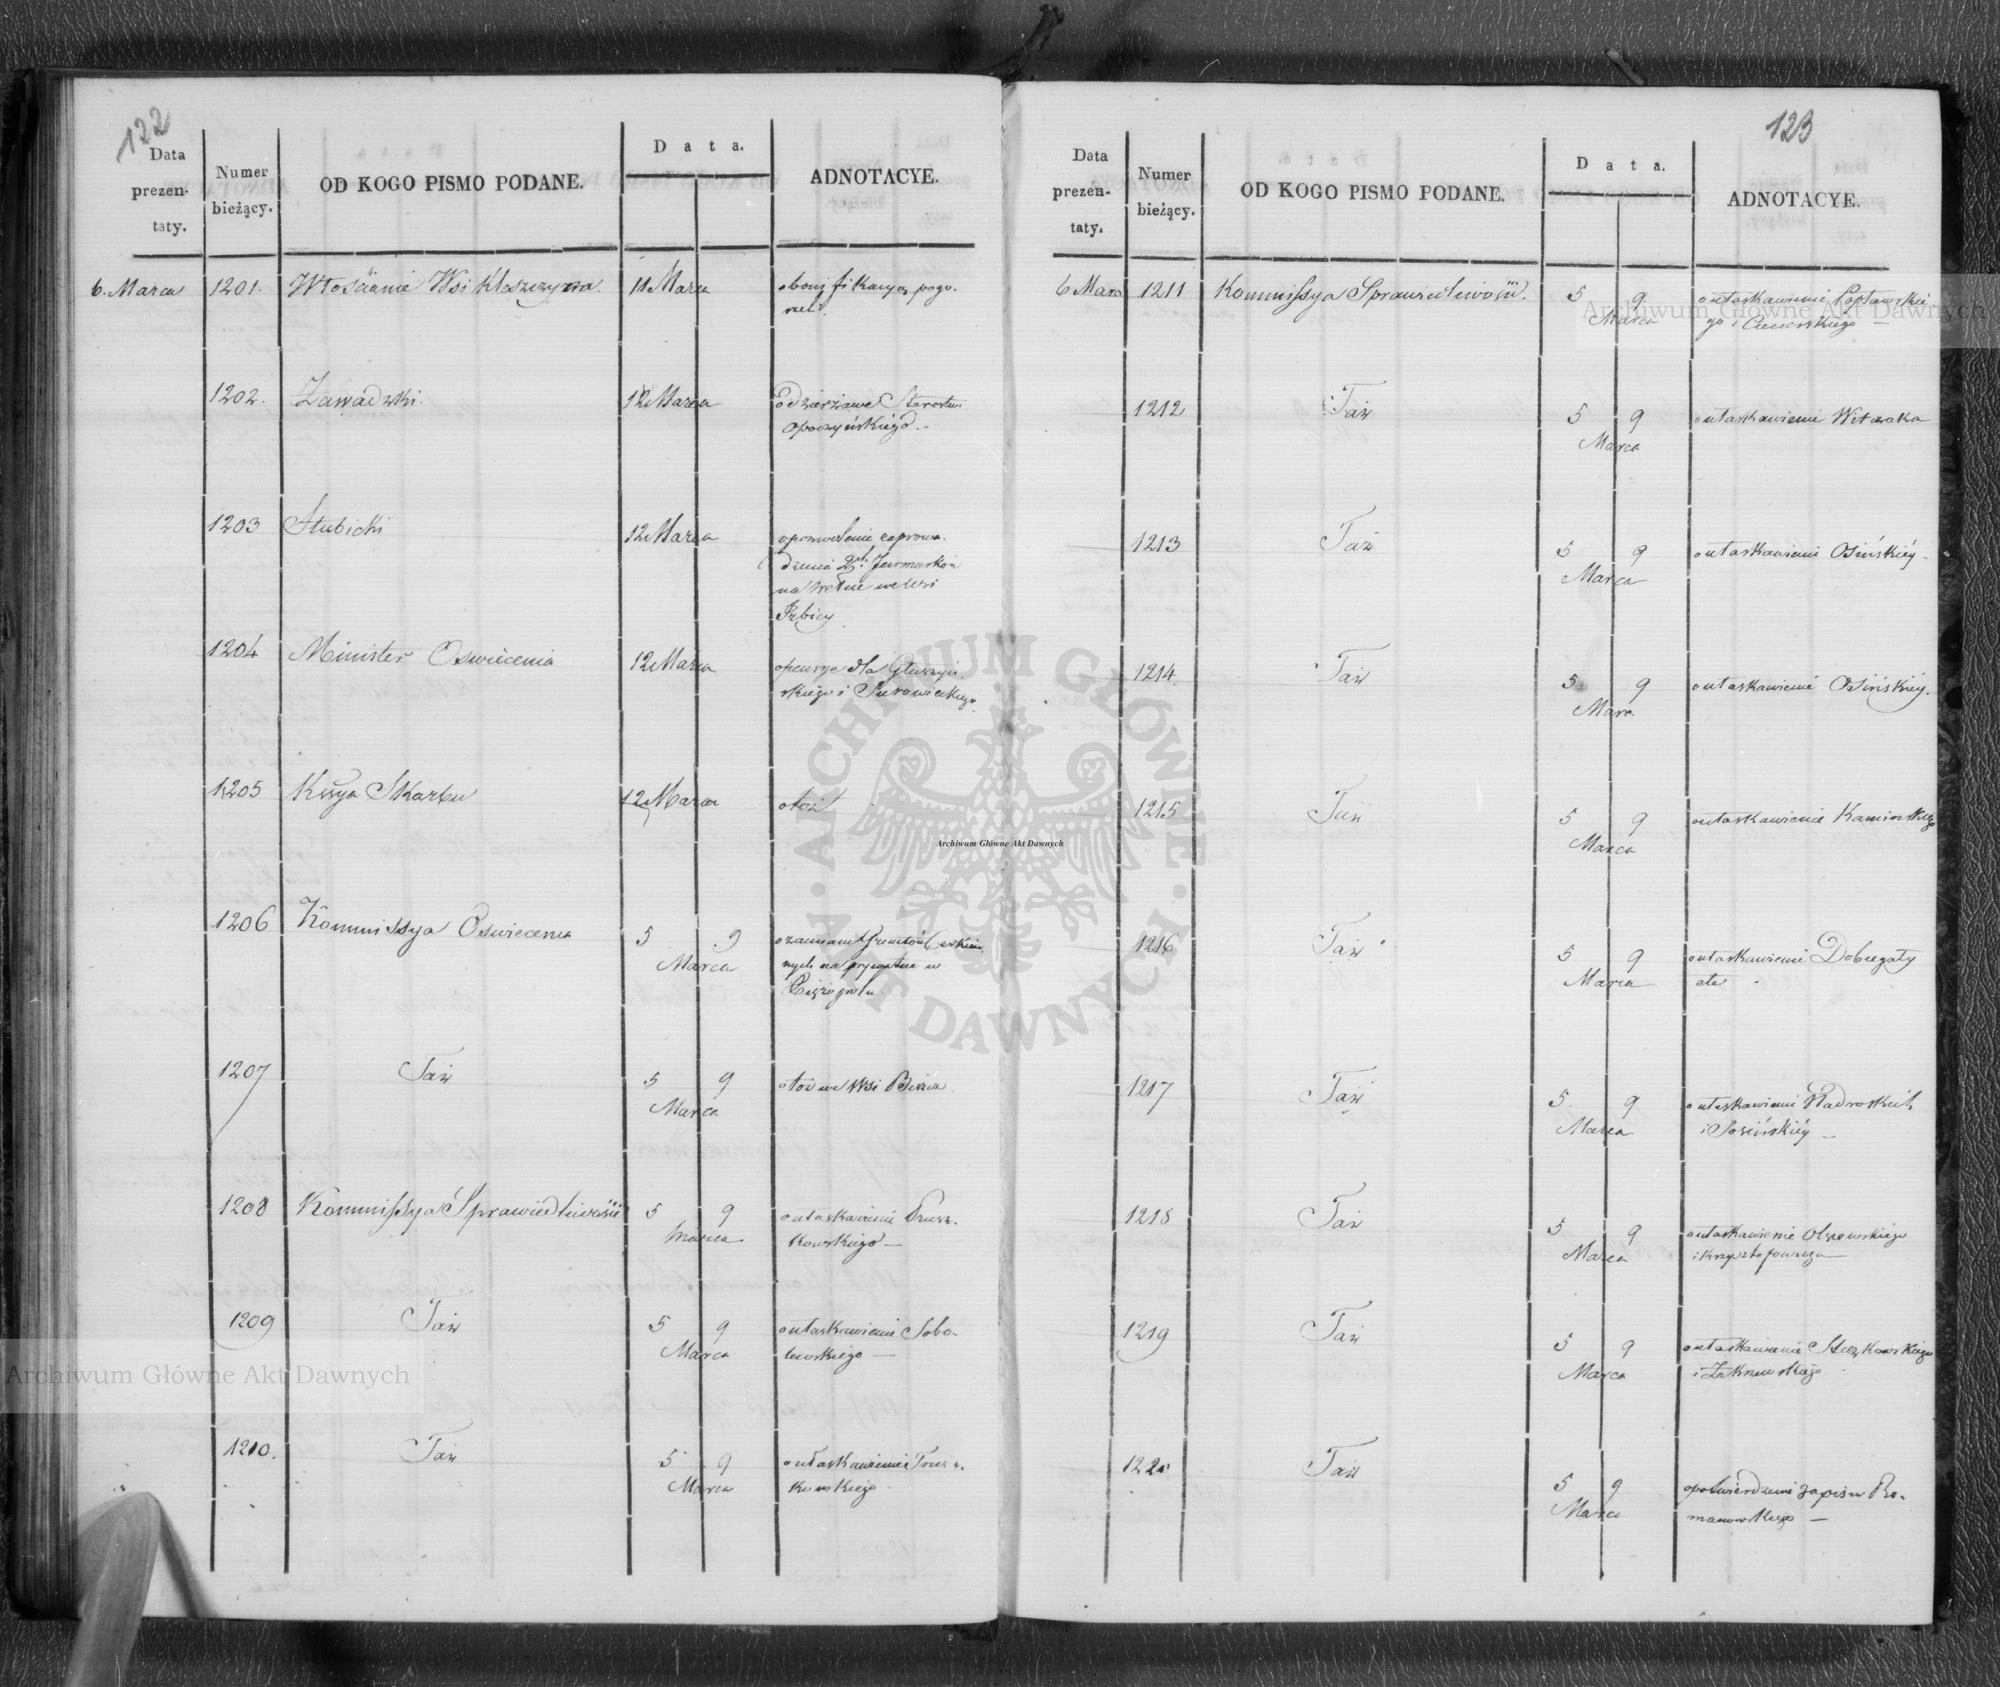 122
Data
prezen-
taty.
Numer
bieżący.
OD KOGO PISMO PODANE.
Data.
ADNOTACYE.
6. Marca 1201. Włościanie Wsi Kleszczyna. 11 Marca o bonifikacyą pogo-
rzeli.
1202. Zawadzki. 12 Marca o dzierżawę Starostwa
Opoczyńskiego.-
1203 Słubicki 12 Marca o pozwolenie zaprowa-
dzenia 2ch. Jarmarków
na wełnę we Wsi
Izbicy
1204 Minister Oswiecenia 12 Marca o pensye dla Głuszyń-
skiego i Surowieckiego
1205 Kssya Skarbu 12 Marca o toż
1206 Kommissya Oswiecenia 5 9
Marca
o zamianę Gruntów
nych na prywatne w
1207 Taż 5 9
Marca
o toż we Wsi
1208 Kommissya Sprawiedliwości 5 9
Marca
o ułaskawienie Prusz-
kowskiego —
1209 Taż 5 9
Marca
o ułaskawienie Sobo-
lewskiego —
1210. Taż 5 9
Marca
o ułaskawienie Trusz-
kowskiego
123
Data
prezen-
taty.
Numer
bieżący.
OD KOGO PISMO PODANE.
Data.
ADNOTACYE.
6 Marca 1211 Kommissya Sprawiedliwości. 5 9
Marca
o ułaskawienie Popławskie-
go i —
1212 Taż 5 9
Marca
o ułaskawienie Witczaka
1213 Taż 5 9
Marca
o ułaskawienie Osińskiéy
1214. Taż 5 9
Marca
o ułaskawienie Osińskiéy.
1215 Taż 5 9
Marca
o ułaskawienie Kaminskiego
1216 Taż 5 9
Marca
o ułaskawienie Dobiegały
etc
1217 Taż 5 9
Marca
o ułaskawienie Nadroskich
i Sosińskiéy —
1218 Taż 5 9
Marca
o ułaskawienie Olszewskiego
i Krzysztofowicza
1219 Taż 5 9
Marca
o ułaskawienie Staszkowskiego
i Zakrzewskiego
1220 Taż 5 9
Marca
o potwierdzenie zapisu Ro-
manowskiego —
Archiwum Główne Akt Dawnych
ARCHIWUM GŁÓWNE AKT DAWNYCH
Archiwum Główne Akt Dawnych
Archiwum Główne Akt Dawnych